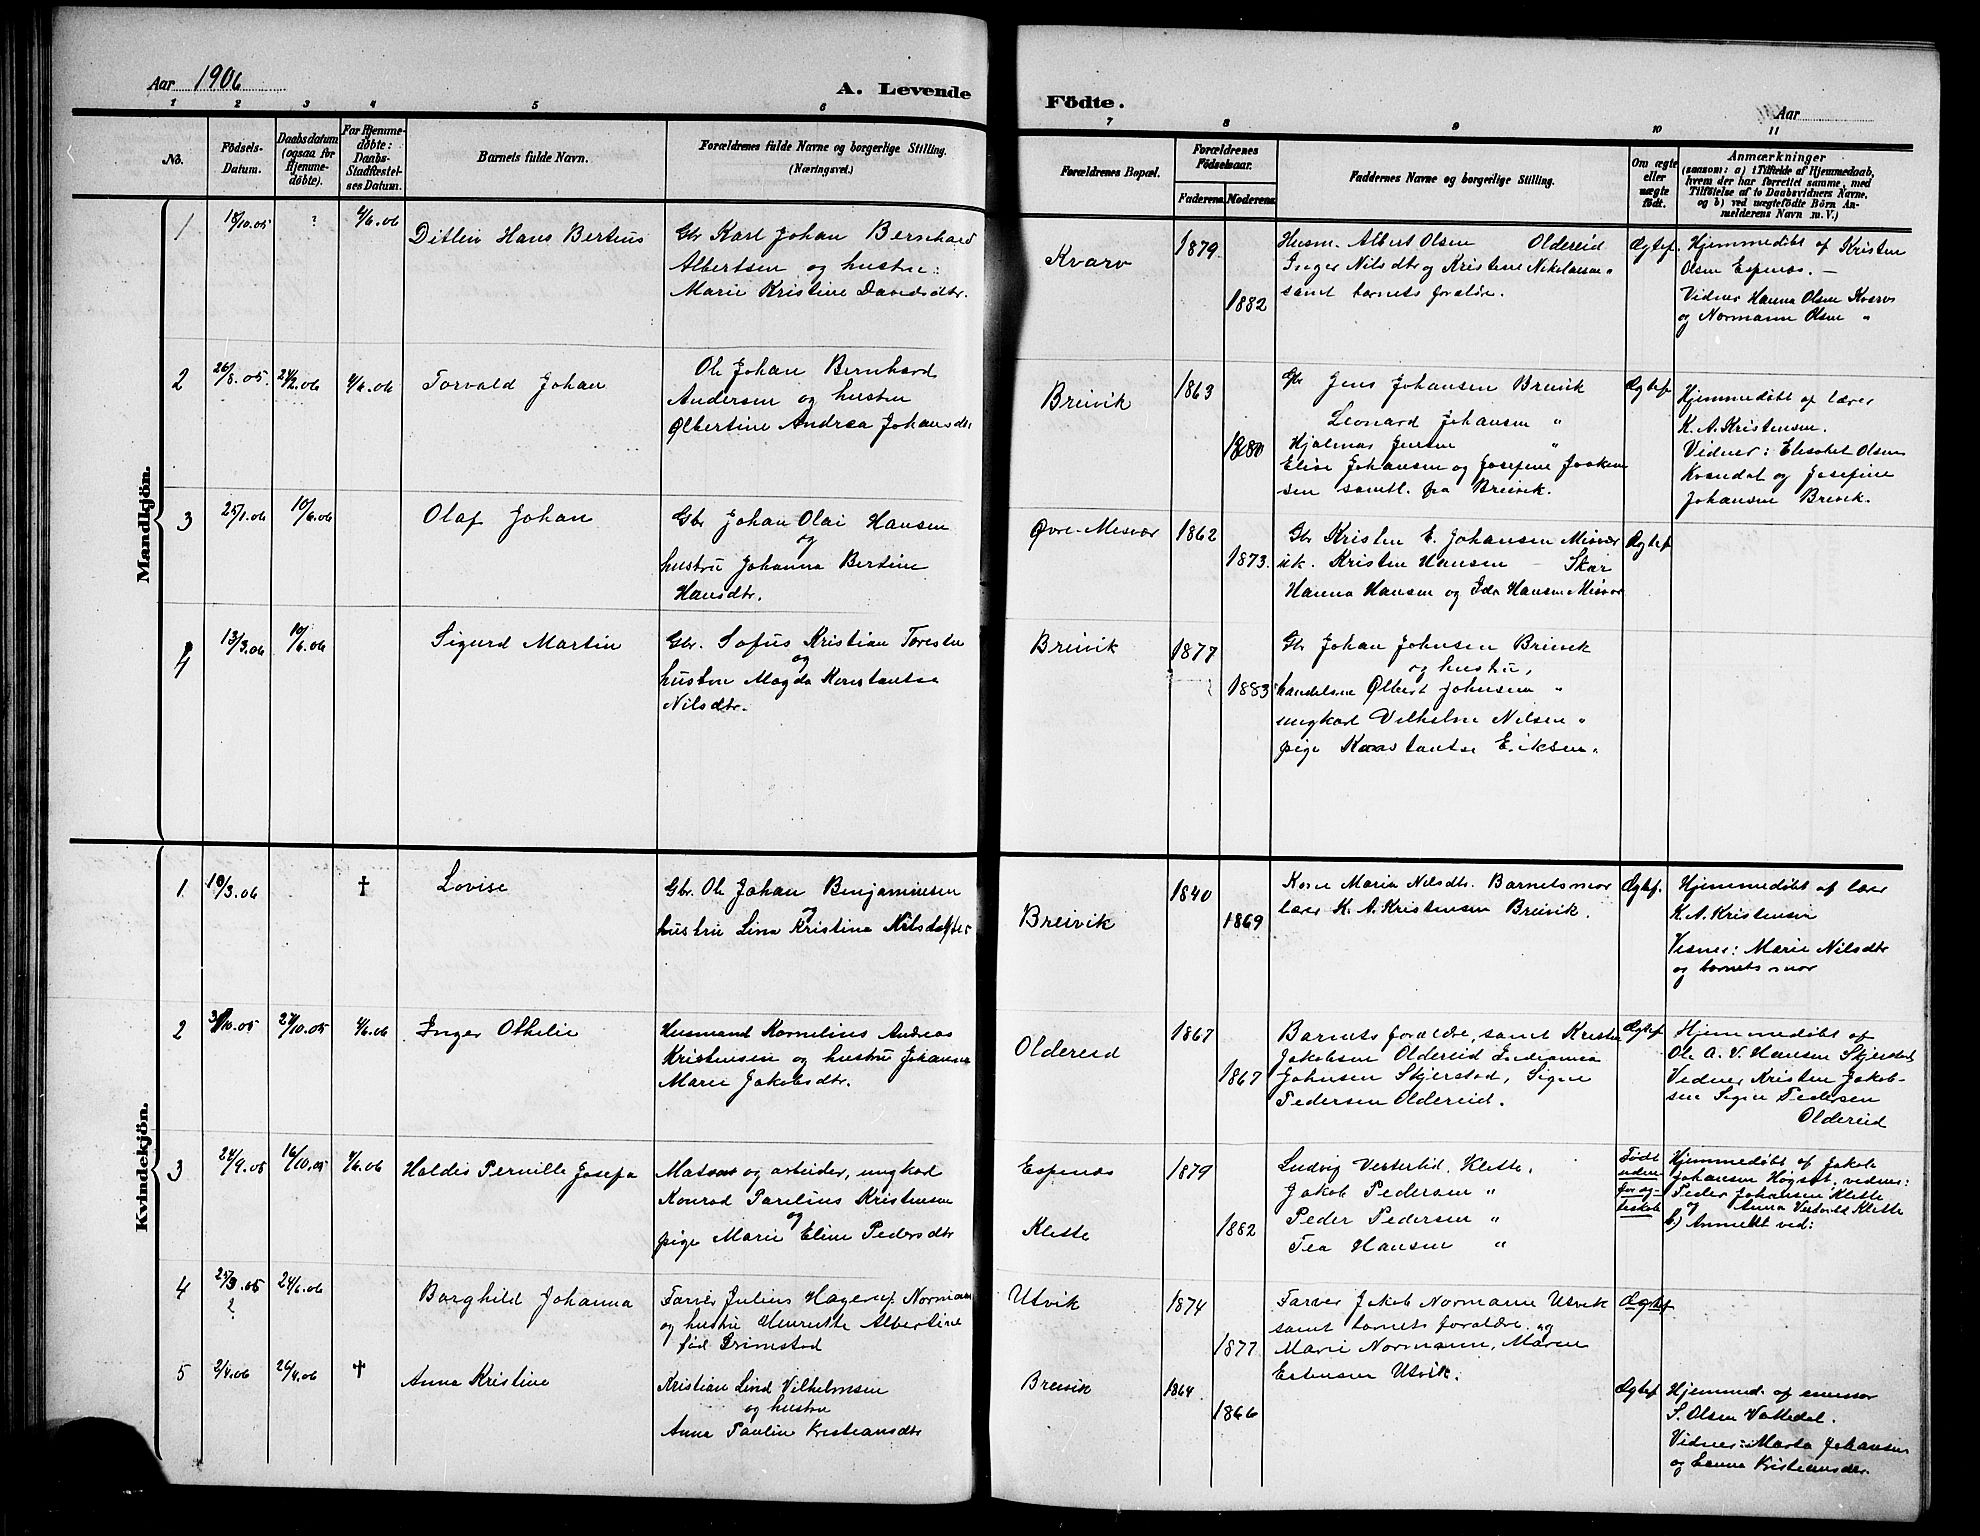 Aar 1906
A. Levende
Födte.
Aar
1 2 3 4 5 6 7 8 9 10 11
No.
Födsels-
Datum.
Daabsdatum
(ogsaa for
Hjemme-
döbte).
For Hjemme-
döbte:
Daabs-
Stadfæstel-
ses Datum.
Barnets fulde Navn.
Forældrenes fulde Navne og borgerlige Stilling.
(Næringsvei.)
Forældrenes Bopæl.
Forældrenes
Födselsaar.
Faderens. Moderens.
Faddernes Navne og borgerlige Stilling.
Om ægte
eller
uægte
födt.
Anmærkninger
(saasom: a) i Tilfælde af Hjemmedaab,
hvem der har forrettet samme, med
Tilföielse af to Daabsvidners Navne,
og b) ved uægtefödte Börn An-
melderens Navn m. V.)
Mandkjön.
1
18/10.05
?
4/6.06
Ditlev Hans Bertius
Gbr Karl Johan Bernhard
Albertsen og hustru:
Marie Kristine Davidsdtr.
Kvarv
1879
1882
Husm. Albert Olsen Oldereid
Inger Nilsdtr og Kristine Nikolaisen "
samt barnets forældre.
Ægtef.
Hjemmedöbt af Kristen
Olsen Espenæs. —
Vidner Hanna Olsen Kvarv
og Normann Olsen "
2
26/8.05.
24/2.06
4/6.06
Torvald Johan
Ole Johan Bernhard
Andersen og hustru
Olbertine Andrea Johansdtr
Breivik
1863
1880
Gbr Jens Johansen Breivik
Leonard Johansen "
Hjalmar Jensen "
Elise Johansen og Josefine Joakim
sen samtl. fra Breivik.
Ægtef
Hjemmedöbt af lærer
K. A. Kristensen.
Vidner: Elisabet Olsen
Kvændal og Josefine
Johansen Breivik.
3
25/1.06
10/6.06
Olaf Johan
Gbr Johan Olai Hansen
og
hustru Johanna Bertine
Hansdtr.
Øvre-Misvær
1862
1873.
Gbr Kristen E. Johansen Misvær
uk. Kristen Hansen — Skar
Hanna Hansen og Ida Hansen Misvær
Ægtef
4
13/3.06
10/6.06
Sigurd Martin
Gbr. Sofus Kristian Toresen
og
hustru Magda Konstantse
Nilsdtr.
Breivik
1877
1883
Gbr Johan Johnsen Breivik
og hustru,
handelsm Olbert Johnsen "
ungkarl Vilhelm Nilsen "
pige Konstantse Eriksen "
Kvindekjön.
1
10/3.06
†
Lovise
Gbr. Ole Johan Benjaminsen
og
hustru Lina Kristina Nilsdatter
Breivik
1840
1869
Kone Maria Nilsdtr. Barnets mor
lærer K. A. Kristensen Breivik.
Ægtef.
Hjemmedöbt af lærer
K. A. Kristensen
Vidner: Marie Nilsdtr
og barnets mor
2
3/10.05
27/10.05
4/6.06
Inger Othelie
Husmand Kornelius Andreas
Kristensen og hustru Johanna
Marie Jakobsdtr.
Oldereid
1867
1867
Barnets forældre, samt Kristen
Jakobsen Oldereid
Johnsen Skjerstad, Signe
Pedersen Oldereid.
Ægtef
Hjemmedöbt af
Ole A. V. Hansen Skjerstad
Vidner Kristen Jakob-
sen Signe Pedersen
Oldereid
3
24/9.05
16/10.05
4/6.06
Haldis Pernille Josefa
Matros og arbeider, ungkarl
Konrad Parelius Kristensen
og
pige Marie Eline Pedersdtr
Espenæs
Klette
1879
1882
Ludvig Vesterlid, Klette,
Jakob Pedersen "
Peder Pedersen "
Tea Hansen "
Födt
uden-
for æg-
teskab
Hjemmedöbt af Jakob
Johansen Högset, vidner:
Peder Johansen Klette
og Anna Klette
b) Anmeldt ved:
4
25/3.05
?
24/6.06
Borghild Johanna
Farver Julius Hagerup Normann
og hustru Henrikke Albertine
föd Grimstad
Utvik
1874
1877
Farver Jakob Normann Utvik
samt barnets forældre og
Marie Normann, Maren
Estensen Utvik.
Ægtef.
5
2/4.06
26/4.06
†
Anna Kristine
Kristian Lind Vilhelmsen
og hustru
Anna Paulin Kristiansdtr
Breivik
1864
1866
Ægtef
Hjemmed. af emissær
S. Olsen Vattedal.
Vidner: Marta Johansen
og Kristiansdtr.